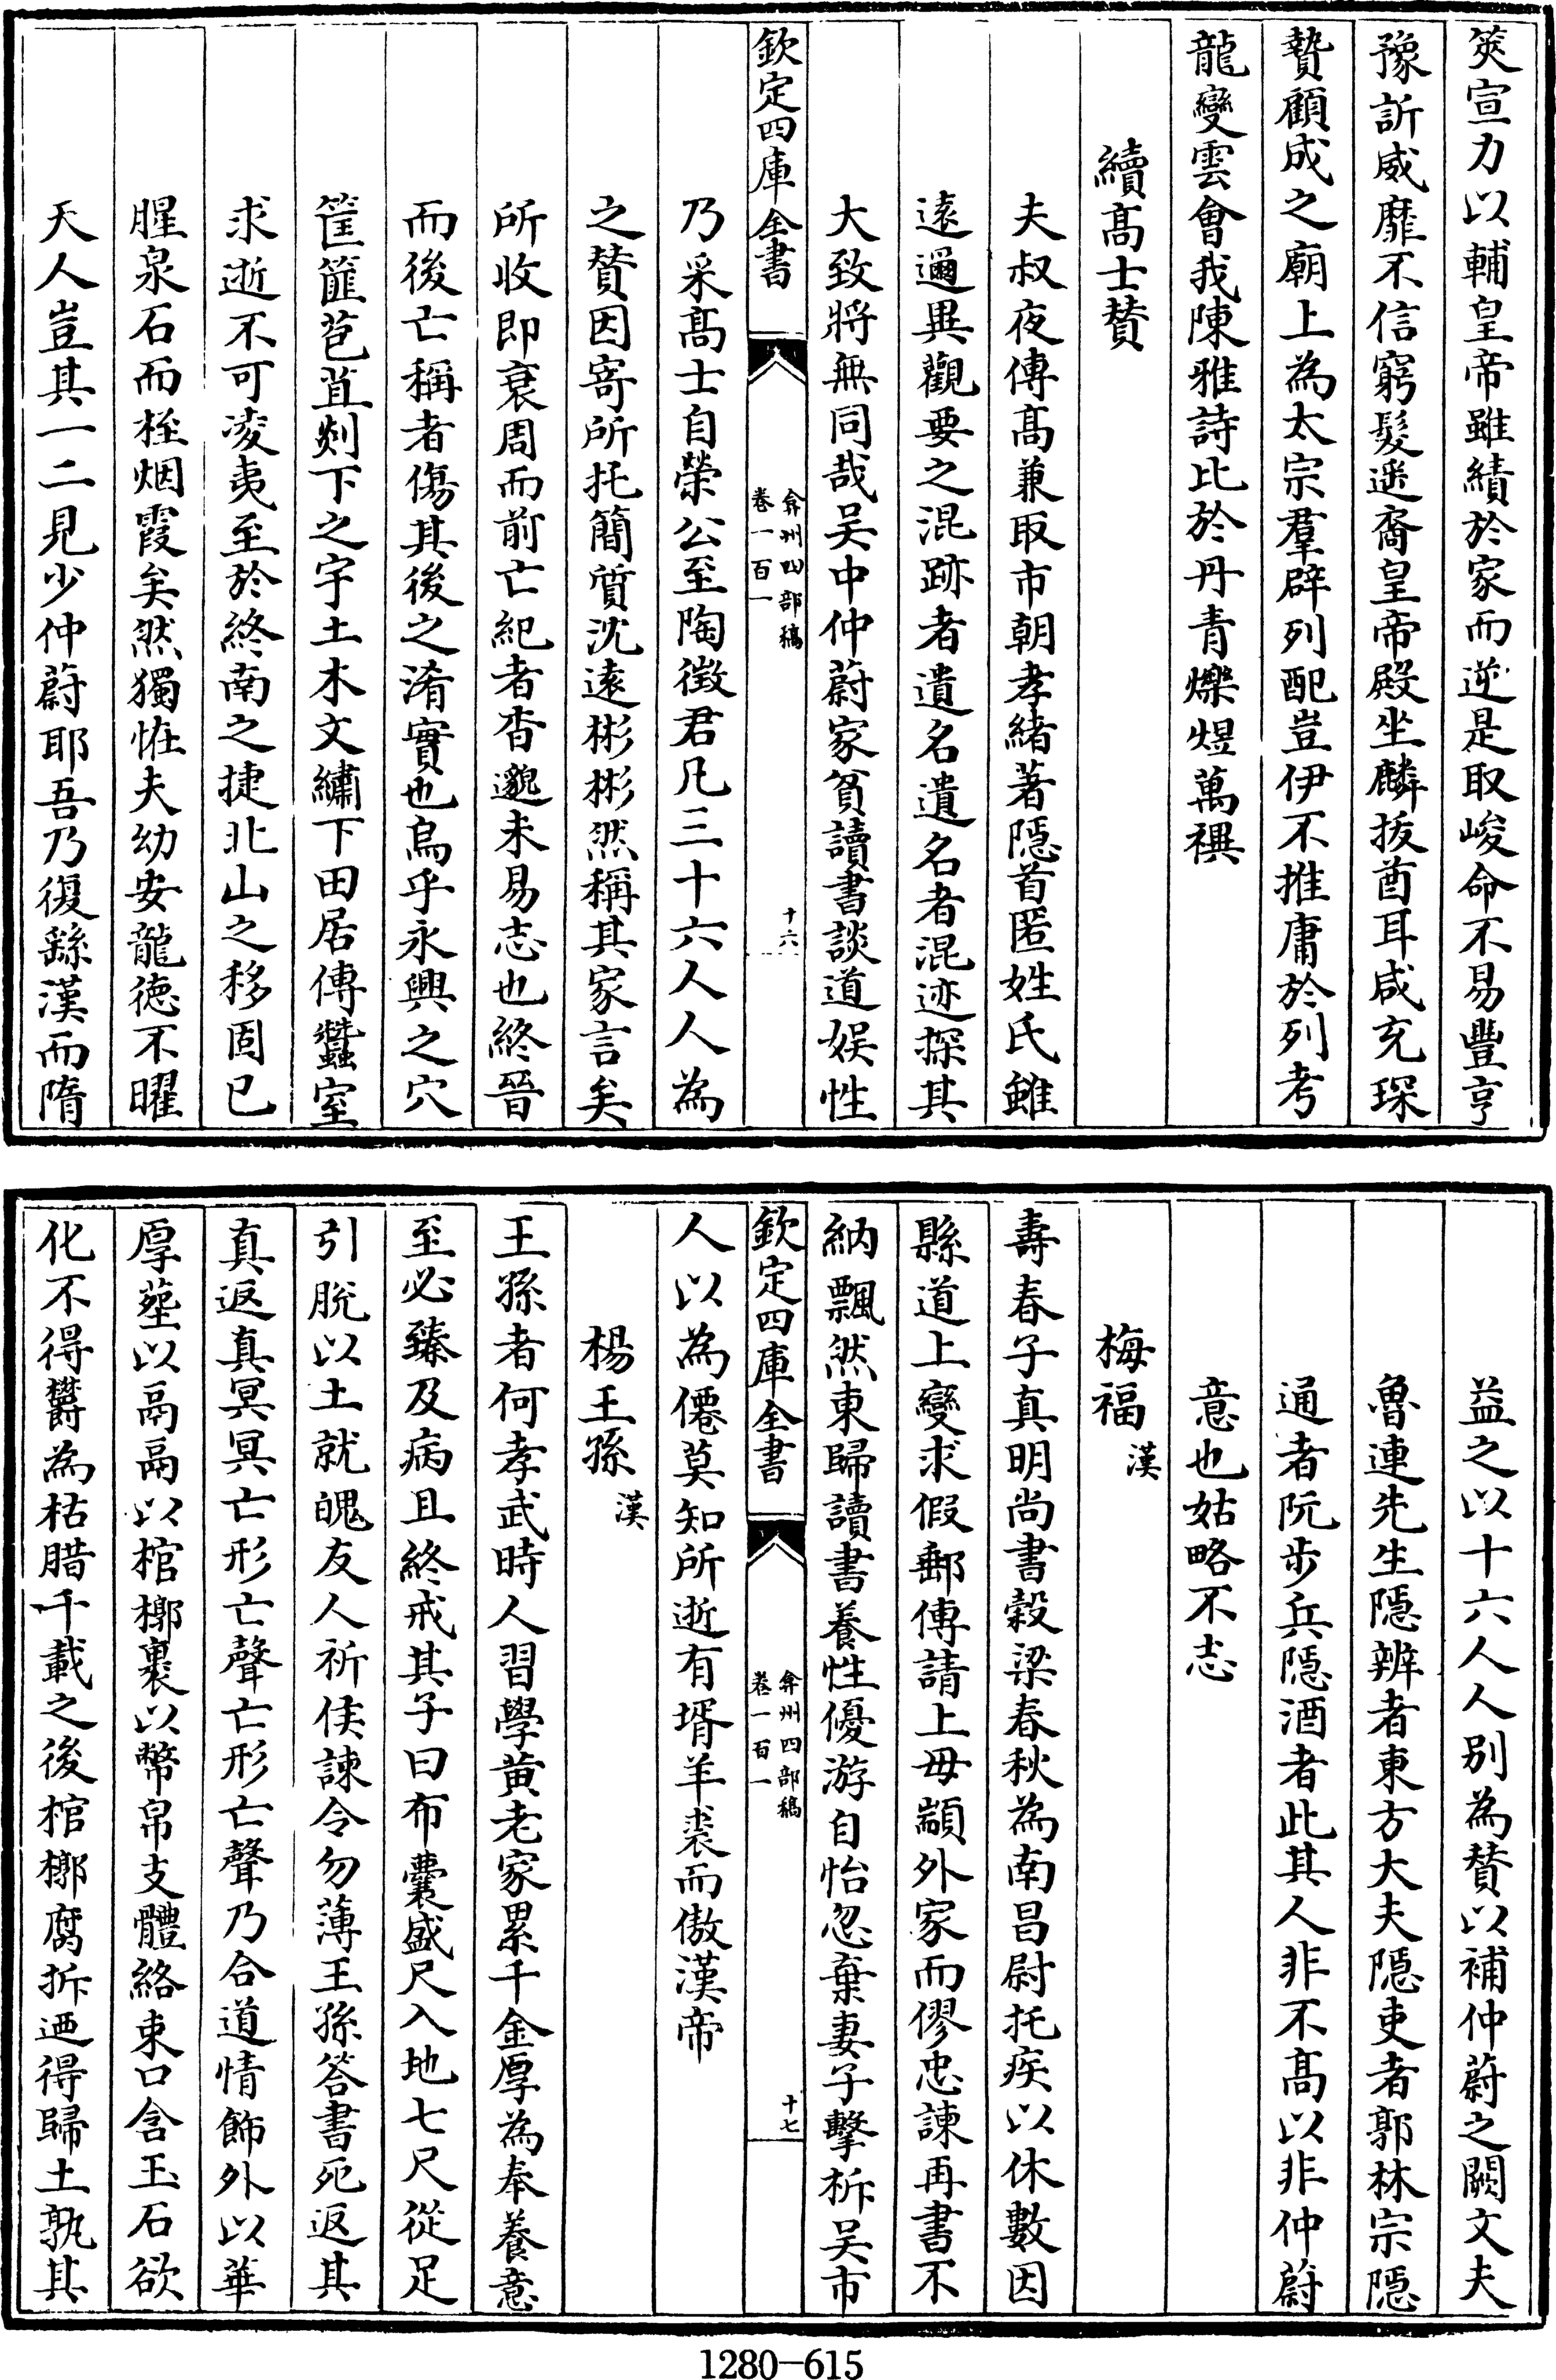 筴宣力以輔皇帝雖績於家而逆是取峻命不易豐亨
豫訢威靡不信窮髮遐裔皇帝殿坐麟拔酋耳咸充琛
贄顧成之廟上為太宗羣辟列配豈伊不推庸於列考
龍變雲會我陳雅詩比於丹青爍煜萬禩
續髙士賛
夫叔夜傳髙兼取市朝孝緒著隠首匿姓氏雖
逺邇異觀要之混跡者遺名遺名者混迹探其
大致將無同哉吴中仲蔚家貧讀書談道娱性
欽定四庫全書
弇州四部稿
卷一百一
十六
乃采髙士自榮公至陶徴君凡三十六人人為
之賛因寄所托簡質沈逺彬彬然稱其家言矣
所收即衰周而前亡紀者杳邈未易志也終晉
而後亡稱者傷其後之淆實也烏乎永興之穴
筐篚苞苴剡下之宇土木文繡下田居傳蠶室
求逝不可凌夷至於終南之捷北山之移固已
腥泉石而桎烟霞矣然獨恠夫幼安龍徳不曜
天人豈其一二見少仲蔚耶吾乃復繇漢而隋
益之以十六人人别為賛以補仲蔚之闕文夫
魯連先生隠辨者東方大夫隠吏者郭林宗隠
通者阮步兵隠酒者此其人非不髙以非仲蔚
意也姑略不志
梅福 漢
壽春子真明尚書穀梁春秋為南昌尉托疾以休數因
縣道上變求假郵傳請上毋顓外家而僇忠諫再書不
納飄然東歸讀書養性優游自怡忽棄妻子擊柝吴市
欽定四庫全書
弇州四部稿
卷一百一
十七
人以為僊莫知所逝有壻羊裘而傲漢帝
楊王孫 漢
王孫者何孝武時人習學黄老家累千金厚為奉養意
至必臻及病且終戒其子曰布囊盛尺入地七尺從足
引脱以土就魄友人祈侯諫令勿薄王孫答書死返其
真返真冥冥亡形亡聲亡形亡聲乃合道情飾外以華
厚塟以鬲鬲以棺槨裹以幣帛支體絡束口含玉石欲
化不得欝為枯腊千載之後棺槨腐拆迺得歸土孰其
1280-615